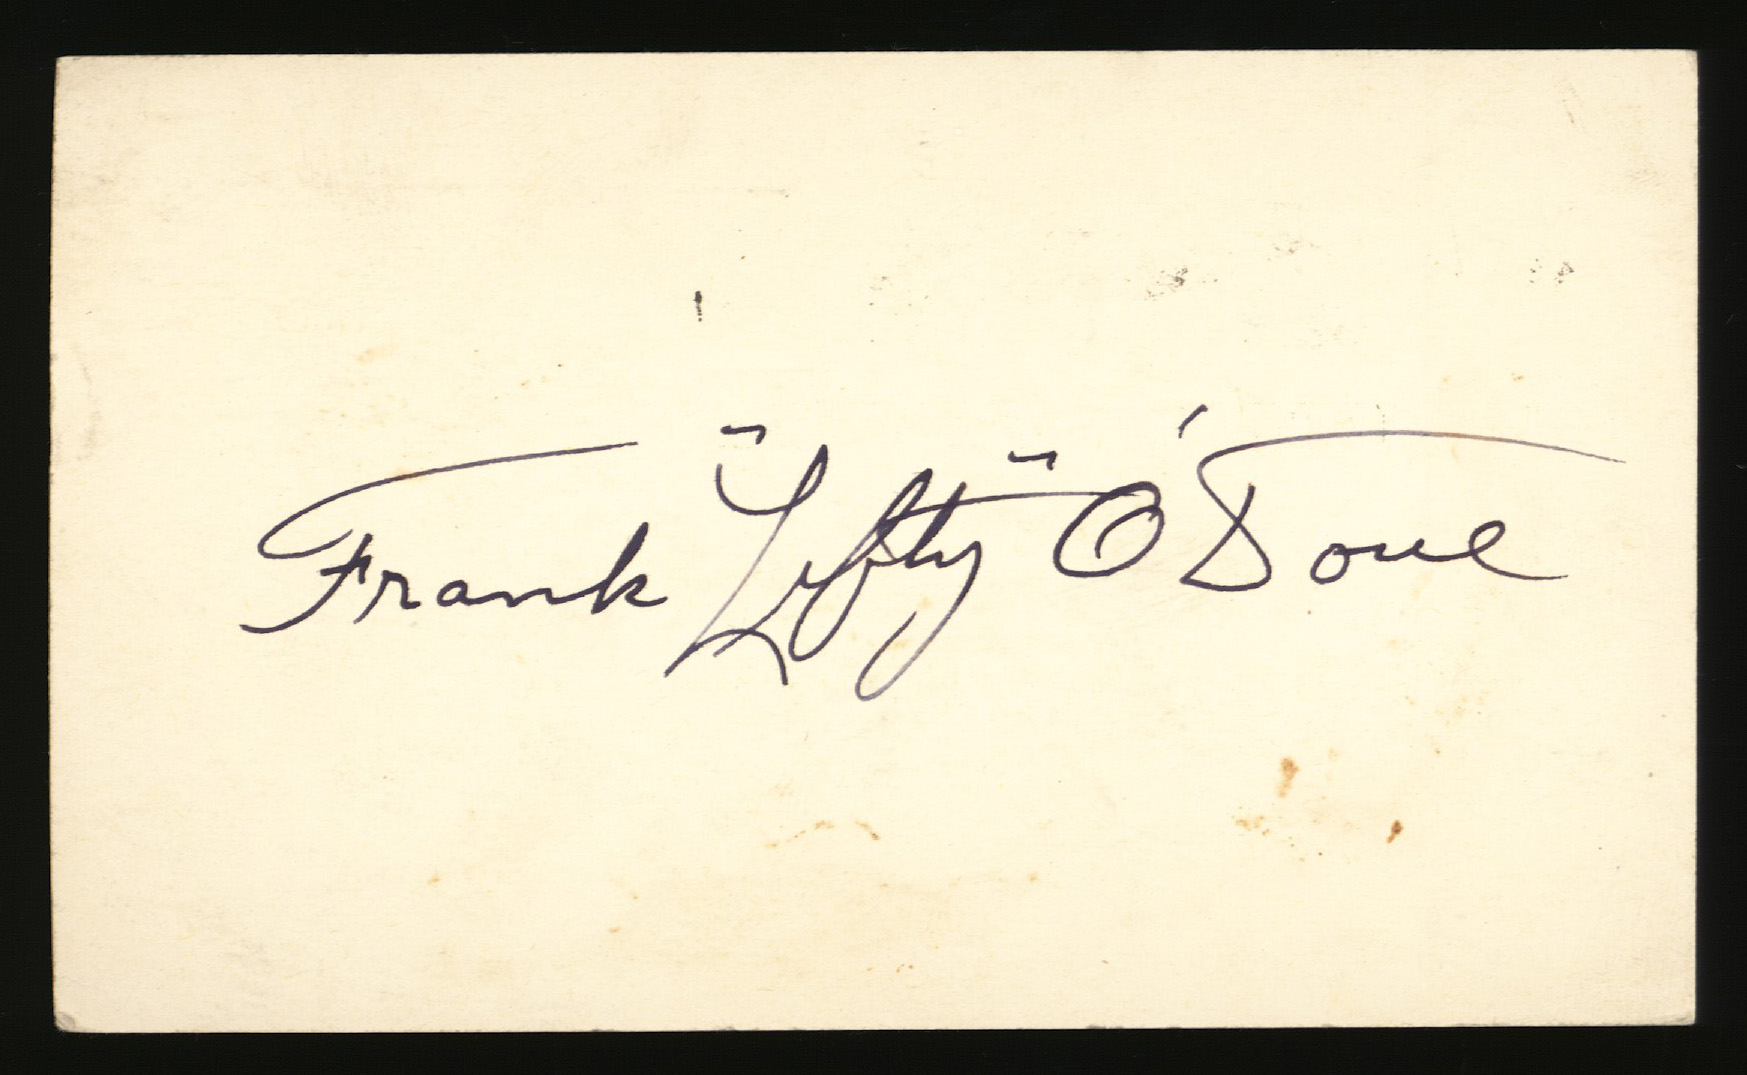 Frank "Lefty" O'Doul